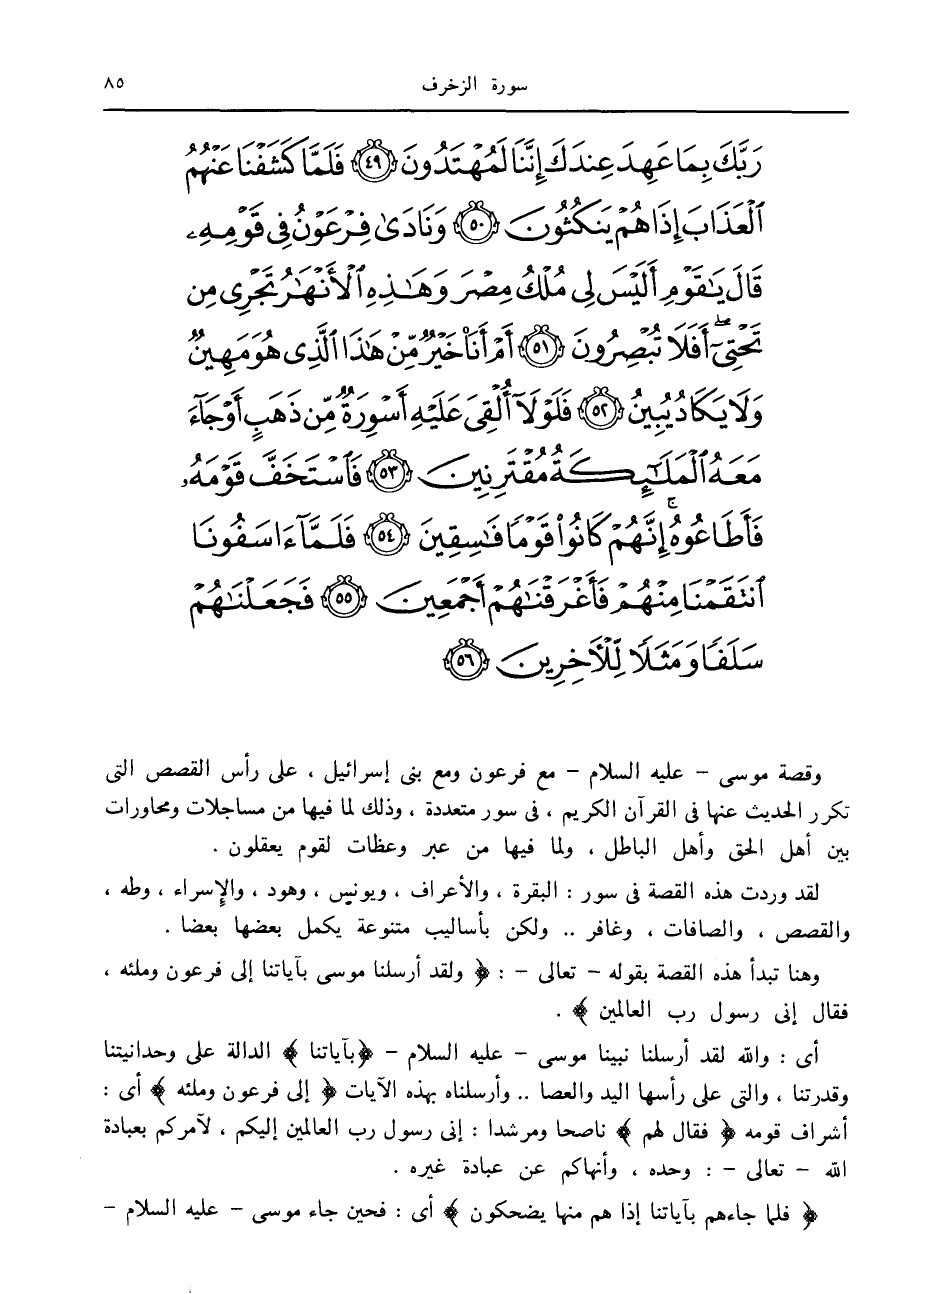 سورة الزخرف ٨٥
رَبَّكَ بِمَا عَهِدَ عِندَكَ إِنَّنَا لَمُهْتَدُونَ ﴿٤٩﴾ فَلَمَّا كَشَفْنَا عَنْهُمُ
ٱلْعَذَابَ إِذَا هُمْ يَنكُثُونَ ﴿٥٠﴾ وَنَادَىٰ فِرْعَوْنُ فِى قَوْمِهِۦ
قَالَ يَٰقَوْمِ أَلَيْسَ لِى مُلْكُ مِصْرَ وَهَٰذِهِ ٱلْأَنْهَٰرُ تَجْرِى مِن
تَحْتِىٓ ۖ أَفَلَا تُبْصِرُونَ ﴿٥١﴾ أَمْ أَنَا۠ خَيْرٌ مِّنْ هَٰذَا ٱلَّذِى هُوَ مَهِينٌ
وَلَا يَكَادُ يُبِينُ ﴿٥٢﴾ فَلَوْلَآ أُلْقِىَ عَلَيْهِ أَسْوِرَةٌ مِّن ذَهَبٍ أَوْ جَآءَ
مَعَهُ ٱلْمَلَٰٓئِكَةُ مُقْتَرِنِينَ ﴿٥٣﴾ فَٱسْتَخَفَّ قَوْمَهُۥ
فَأَطَاعُوهُ ۚ إِنَّهُمْ كَانُوا۟ قَوْمًا فَٰسِقِينَ ﴿٥٤﴾ فَلَمَّآ ءَاسَفُونَا
ٱنتَقَمْنَا مِنْهُمْ فَأَغْرَقْنَٰهُمْ أَجْمَعِينَ ﴿٥٥﴾ فَجَعَلْنَٰهُمْ
سَلَفًا وَمَثَلًا لِّلْـَٔاخِرِينَ ﴿٥٦﴾
وقصة موسى – عليه السلام – مع فرعون ومع بنى إسرائيل ، على رأس القصص التى
تكرر الحديث عنها فى القرآن الكريم ، فى سور متعددة ، وذلك لما فيها من مساجلات ومحاورات
بين أهل الحق وأهل الباطل ، ولما فيها من عبر وعظات لقوم يعقلون .
لقد وردت هذه القصة فى سور : البقرة ، والأعراف ، ويونس ، وهود ، والإسراء ، وطه ،
والقصص ، والصافات ، وغافر .. ولكن بأساليب متنوعة يكمل بعضها بعضا .
وهنا تبدأ هذه القصة بقوله – تعالى – : ﴿ ولقد أرسلنا موسى بآياتنا إلى فرعون وملئه ،
فقال إنى رسول رب العالمين ﴾ .
أى : والله لقد أرسلنا نبينا موسى – عليه السلام – ﴿بآياتنا ﴾ الدالة على وحدانيتنا
وقدرتنا ، والتى على رأسها اليد والعصا .. وأرسلناه بهذه الآيات ﴿ إلى فرعون وملئه ﴾ أى :
أشراف قومه ﴿ فقال لهم ﴾ ناصحا ومرشدا : إنى رسول رب العالمين إليكم ، لآمركم بعبادة
الله – تعالى – : وحده ، وأنهاكم عن عبادة غيره .
﴿ فلما جاءهم بآياتنا إذا هم منها يضحكون ﴾ أى : فحين جاء موسى – عليه السلام –